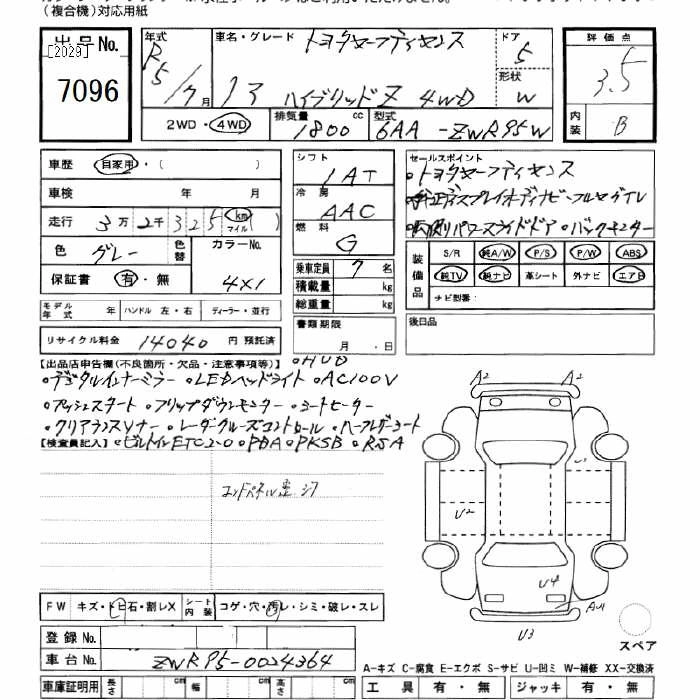 (複合機)対応用紙
出品No.
[2029]
7096
年式 R5/7月
車名・グレード トヨタセーフティセンス
ドア 5
1 3 ハイブリッドZ 4WD
形状 W
2WD・4WD
排気量 1800 cc
型式 6AA-ZWR95W
評価点 3.5
内装 B
車歴 自家用・( )
車検 年 月
走行 3万2千325 km マイル ( )
色 グレー 色替 カラーNo. 4×1
保証書 有・無
モデル年式 年 ハンドル 左・右 ディーラー・並行
リサイクル料金 14040 円 預託済
シフト IAT
冷房 AAC
燃料 G
乗車定員 7名
積載量 kg
総重量 kg
書類期限 月・日
セールスポイント
・トヨタセーフティセンス
・純正ディスプレイオーディオナビ・フルセグTV
・両側パワースライドドア ・バックモニター
装備品 S/R 純A/W P/S P/W ABS
純TV 純ナビ 革シート 外ナビ エアB
ナビ型番:
後日品
【出品店申告欄(不良箇所・欠品・注意事項等)】 ・HUD
・デジタルインナーミラー ・LEDヘッドライト ・AC100V
・プッシュスタート ・フリップダウンモニター ・シートヒーター
・クリアランスソナー ・レーダークルーズコントロール ・ハーフレザーシート
【検査員記入】 ・ビルトインETC2.0 ・PDA ・PKSB ・RSA
コアパネル歪
A2 A2
U2
U4
U3
FW キズ・トビ石・割レX シート内装 コゲ・穴・汚レ・シミ・破レ・スレ
登録No.
車台No. ZWR95-0024364
車庫証明用 長さ cm 幅 cm 高さ cm
スペア
A-キズ C-腐食 E-エクボ S-サビ U-凹ミ W-補修 XX-交換済
工具 有・無 ジャッキ 有・無